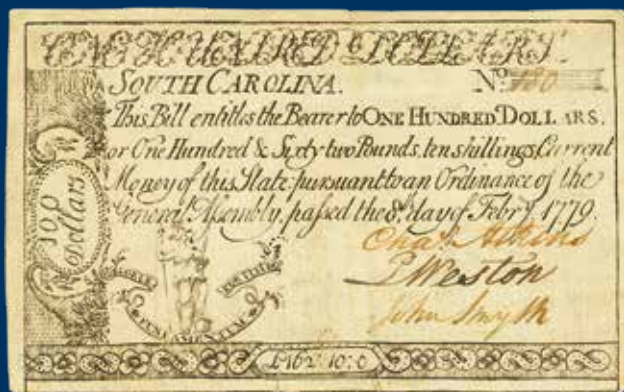 ONE HUNDRED DOLLARS.
SOUTH CAROLINA. No 180
This Bill entitles the Bearer to ONE HUNDRED DOLLARS.
or One Hundred & Sixty two Pounds, ten shillings, Current
Money of this State, pursuant to an Ordinance of the
General Assembly, passed the 8th day of Febry. 1779.
100
Dollars
Chas. Atkins
P Weston
John Smyth
£162:10:0